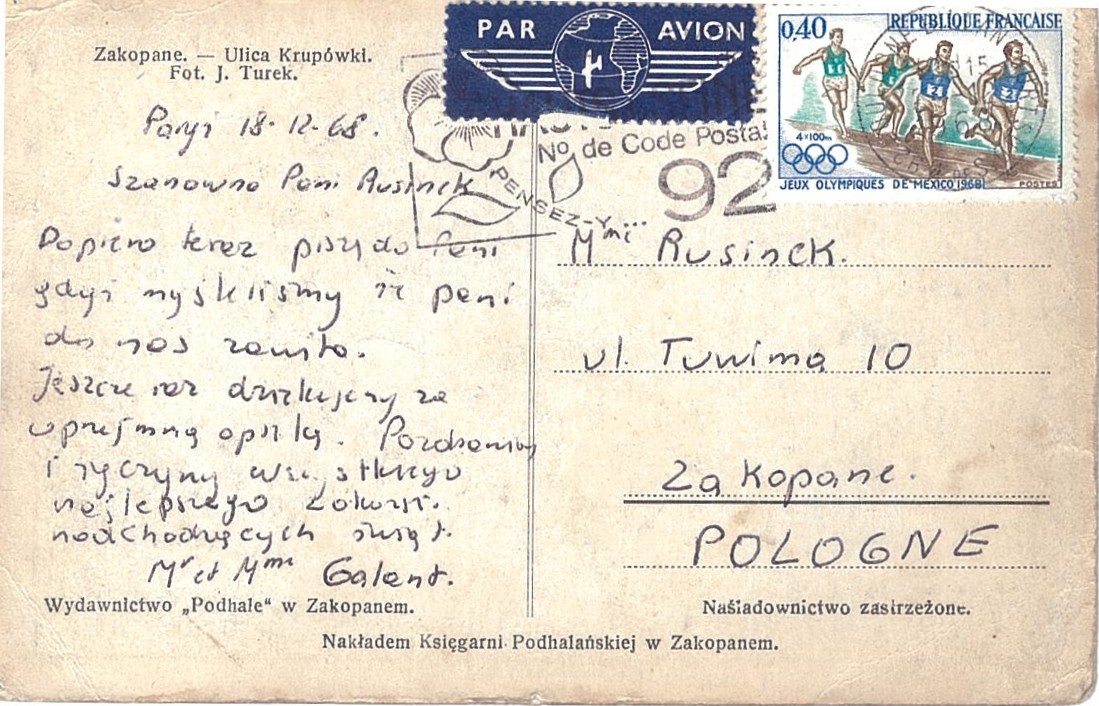 Zakopane. — Ulica Krupówki.
Fot. J. Turek.
PAR AVION
0,40 REPUBLIQUE FRANÇAISE
4×100m
JEUX OLYMPIQUES DE MEXICO 1968
POSTES
No. de Code Postal
92
PENSEZ-Y...
Paryż 18-12-68.
Szanowna Pani Rusinek
Dopiero teraz piszę do Pani
gdyż myśleliśmy że pani
do nas zawita.
Jeszcze raz dziękujemy za
uprzejmną opiekę. Pozdrawiamy
i życzymy wszystkiego
najlepszego z okazji
nadchodzących świąt.
Mr et Mme Galent.
Mme Rusinek.
ul. Tuwima 10
Zakopane.
POLOGNE
Wydawnictwo „Podhale“ w Zakopanem.
Naśladownictwo zastrzeżone.
Nakładem Księgarni Podhalańskiej w Zakopanem.